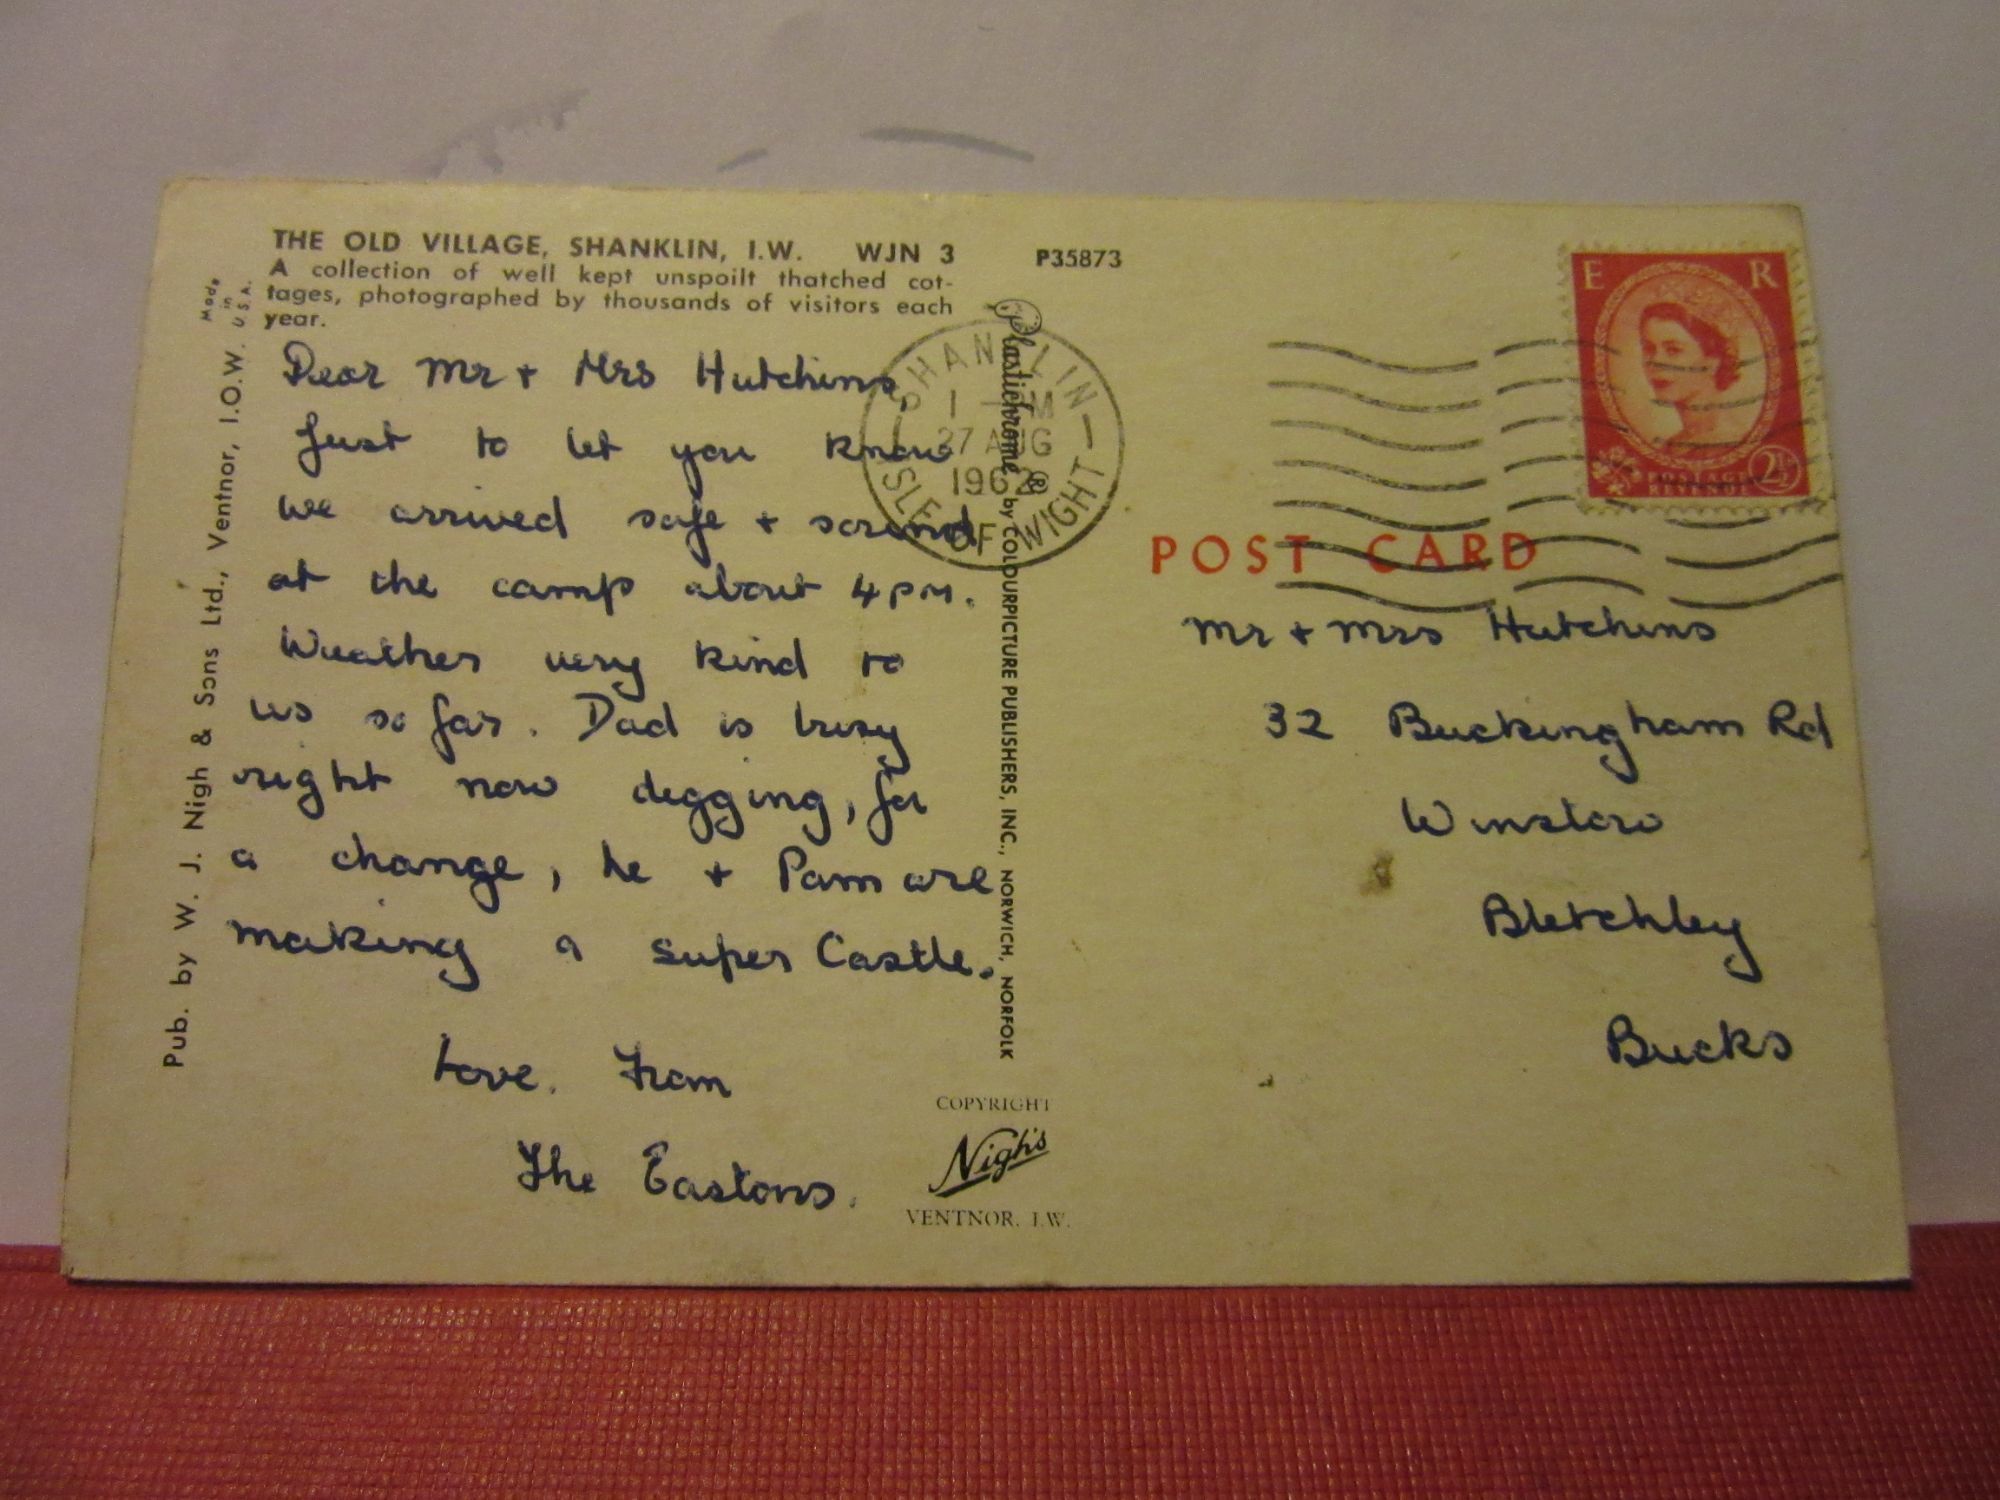 THE OLD VILLAGE, SHANKLIN, I.W. WJN 3
A collection of well kept unspoilt thatched cot-
tages, photographed by thousands of visitors each
year.
P35873
Made
in
U.S.A.
Pub. by W. J. Nigh & Sons Ltd., Ventnor, I.O.W.
Dear Mr + Mrs Hutchins,
Just to let you know
we arrived safe + sound
at the camp about 4 PM.
Weather very kind to
us so far. Dad is busy
right now digging, for
a change, he + Pam are
making a super Castle.
Love. From
The Eastons.
SHANKLIN
1 - PM
27 AUG
1962
ISLE OF WIGHT
Plastichrome ® by COLOURPICTURE PUBLISHERS, INC., NORWICH, NORFOLK
COPYRIGHT
Nigh's
VENTNOR, I.W.
E R
REVENUE
2½
POST CARD
Mr + Mrs Hutchins
32 Buckingham Rd
Winslow
Bletchley
Bucks